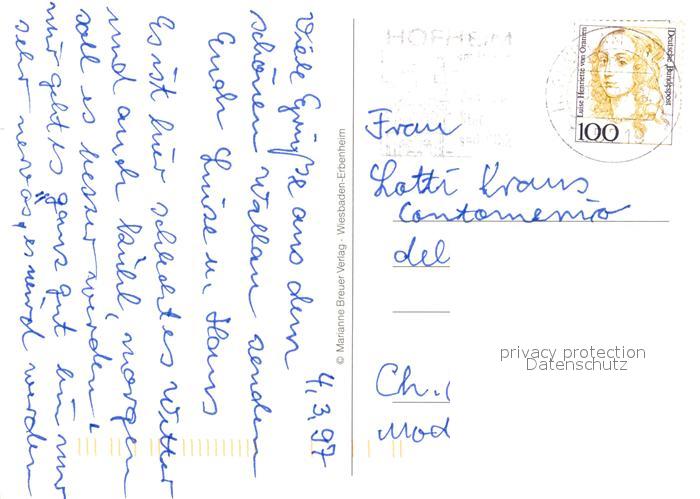 4.3.97
Viele Grüße aus dem
schönen Wallau senden
Euch Luise u. Hans
Es ist hier schlechtes Wetter
und auch kühl, morgen
soll es besser werden!
mir geht es ganz gut bin nur
sehr nervös, es wird werden
© Marianne Breuer Verlag · Wiesbaden-Erbenheim
HOFHEIM
Luise Henriette von Oranien
Deutsche Bundespost
100
Frau
Lotti Kraus
Contomenio
del
privacy protection
Datenschutz
Ch.
Mod